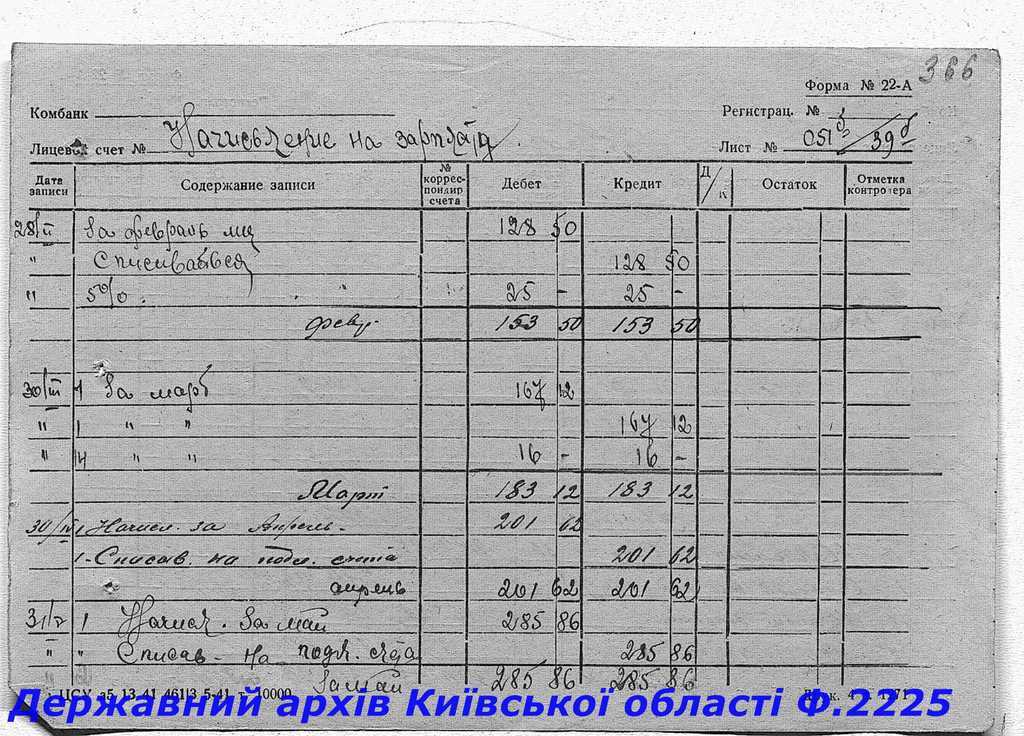 366
Форма № 22-А
Комбанк
Регистрац. №
Лицевой счет № Начисление на зарплату
Лист № 051 б/39 б
Дата записи Содержание записи № коррес-пондир счета Дебет Кредит Д/К Остаток Отметка контролера
28/II За февраль м-ц 128 50
" Списывается 128 50
" 5% . " 25 - 25 -
февр. 153 50 153 50
30/III 1 За март 167 12
" 1 " " 167 12
" 14 " " 16 - 16 -
Март 183 12 183 12
30/IV 1 Начисл. за Апрель - 201 62
1 - Списав. на подл. счета 201 62
апрель 201 62 201 62
31/V 1 Начисл. За май 285 86
" " Списав - на подл. счета 285 86
За май 285 86 285 86
ЦСУ 5.13.41 461/3 5-41 г. 10000
Державний архів Київської області Ф.2225